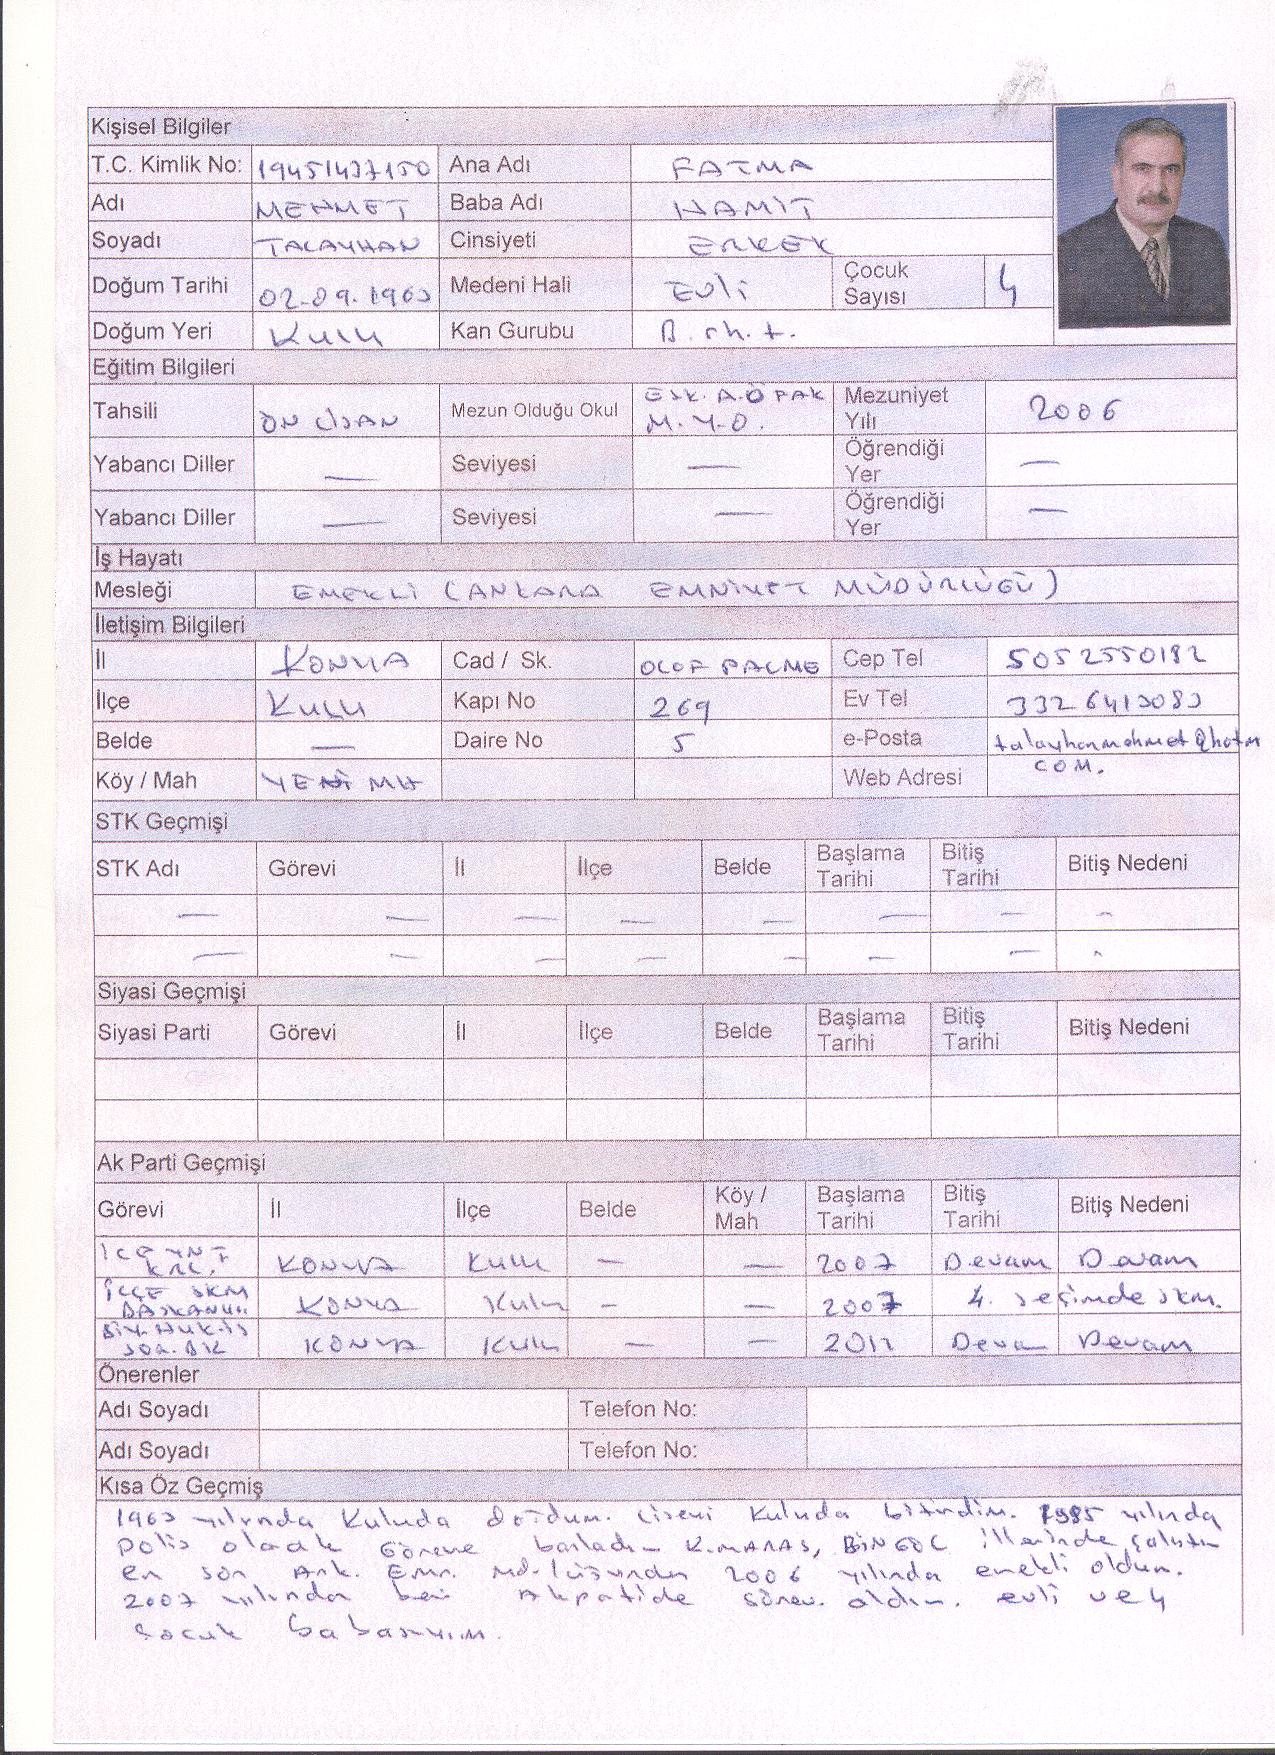 Kişisel Bilgiler
T.C. Kimlik No: 19451437150 Ana Adı FATMA
Adı MEHMET Baba Adı HAMİT
Soyadı TALAYHAN Cinsiyeti ERKEK
Doğum Tarihi 02.09.1963 Medeni Hali Evli Çocuk Sayısı 4
Doğum Yeri Kulu Kan Gurubu B.rh.+.
Eğitim Bilgileri
Tahsili ÖN LİSAN Mezun Olduğu Okul ESK. A.Ö M.Y.O. Mezuniyet Yılı 2006
Yabancı Diller — Seviyesi — Öğrendiği Yer —
Yabancı Diller — Seviyesi — Öğrendiği Yer —
İş Hayatı
Mesleği EMEKLİ (ANKARA EMNİYET MÜDÜRLÜĞÜ)
İletişim Bilgileri
İl KONYA Cad / Sk. OLOF PALME Cep Tel 5052550182
İlçe KULU Kapı No 269 Ev Tel 3326413083
Belde — Daire No 5 e-Posta talayhanmehmet@hotm
COM.
Köy / Mah YENİ MH Web Adresi
STK Geçmişi
STK Adı Görevi İl İlçe Belde Başlama Tarihi Bitiş Tarihi Bitiş Nedeni
— — — — — — — -
— — — — — — — -
Siyasi Geçmişi
Siyasi Parti Görevi İl İlçe Belde Başlama Tarihi Bitiş Tarihi Bitiş Nedeni
Ak Parti Geçmişi
Görevi İl İlçe Belde Köy / Mah Başlama Tarihi Bitiş Tarihi Bitiş Nedeni
KONYA Kulu — — 2007 Devam Devam
İLÇE SKM BAŞKANLIĞI KONYA Kulu — — 2007 4. seçimde skm.
KONYA Kulu — — 2011 Deva Devam
Önerenler
Adı Soyadı Telefon No:
Adı Soyadı Telefon No:
Kısa Öz Geçmiş
1963 yılında Kuluda doğdum. Liseni Kuluda bitirdim. 1985 yılında
polis olarak Göreve başladım K.MARAŞ, BİNGÖL illerinde çalıştım
en son Ank. Emn. Md-lüğünden 2006 yılında emekli oldum.
2007 yılından beri Akpatide görev aldım. evli ve 4
çocuk babasıyım.